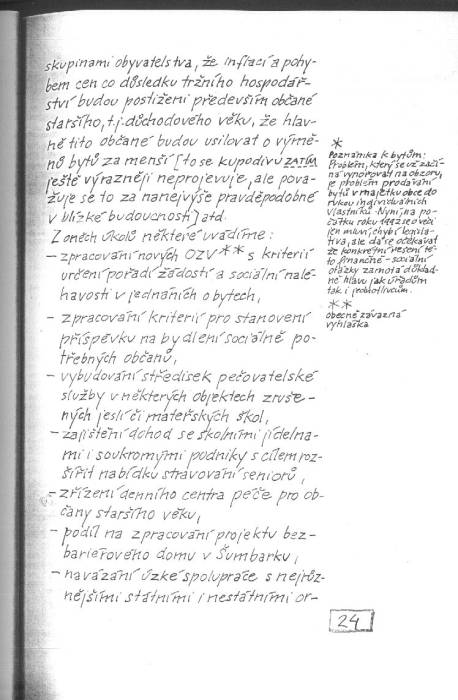 skupinami obyvatelstva, že inflací a pohy-
bem cen co důsledku tržního hospodář-
ství budou postiženi především občané
staršího, t.j. důchodového věku, že hlav-
ně tito občané budou usilovat o výmě-
nů bytů za menší [to se kupodivu ZATÍM
ještě výrazněji neprojevuje, ale pova-
žuje se to za nanejvýše pravděpodobné
v blízké budoucnosti] atd.
Z oněch úkolů některé uvádíme:
- zpracování nových OZV** s kriterií
určení pořadí žádostí a sociální nalé-
havosti v jednáních o bytech,
- zpracování kriterií pro stanovení
příspěvku na bydlení sociálně po-
třebných občanů,
- vybudování středisek pečovatelské
služby v některých objektech zruše-
ných jeslí či mateřských škol,
- zajištění dohod se školními jídelna-
mi i soukromými podniky s cílem roz-
šířit nabídku stravování seniorů,
- zřízení denního centra péče pro ob-
čany staršího věku,
- podíl na zpracování projektu bez-
bariérového domu v Šumbarku,
- navázání úzké spolupráce s nejrůz-
nějšími státními i nestátními or-
*
Poznámka k bytům:
Problém, který se už začí-
ná vynořovat na obzoru,
je problém prodávání
bytů v majetku obce do
rukou individuálních
vlastníků. Nyní, na po-
čátku roku 1992 se o věci
jen mluví, chybí legisla-
tiva, ale dá se očekávat
že konkrétní řešení té-
to finančně - sociální
otázky zamotá důklad-
ně hlavu jak úřadům
tak i jednotlivcům.
**
obecně závazná
vyhláška
24